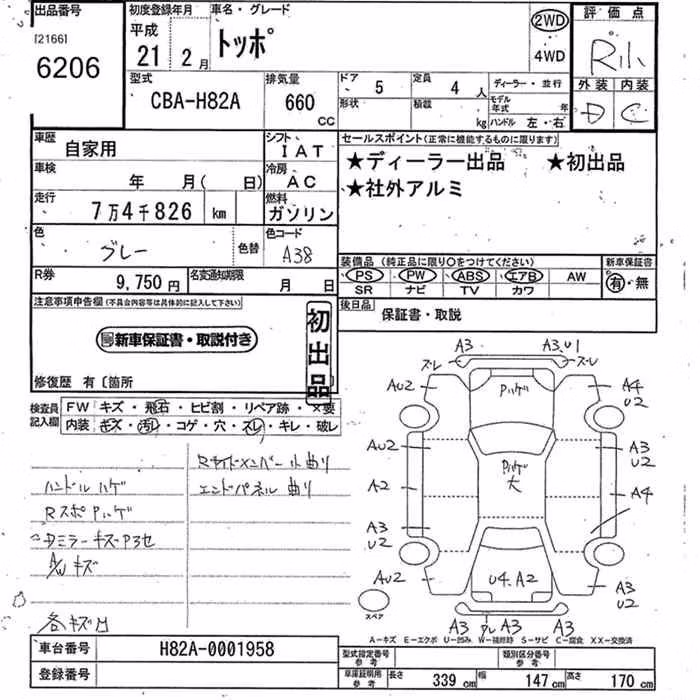 出品番号
[2166]
6206
初度登録年月
平成
21 2月
車名・グレード
トッポ
2WD
4WD
評価点
R小
外装 内装
D C
型式
CBA-H82A
排気量
660
CC
ドア 5
形状
定員 4 人
積載 kg
ディーラー・並行
モデル年式 年
ハンドル 左・右
車歴
自家用
シフト
IAT
車検
年 月( 日)
冷房
AC
走行
7万4千826 km
燃料
ガソリン
色
ブレー
色替
色コード
A38
R券
9,750円
名変通知期限
月 日
セールスポイント(正常に機能するものに限ります)
★ディーラー出品 ★初出品
★社外アルミ
装備品(純正品に限り○をつけてください)
PS PW ABS エアB AW
SR ナビ TV カワ
新車保証書
有・無
後日品
保証書・取説
注意事項申告欄(不具合内容等は具体的に記入して下さい)
新車保証書・取説付き
初出品
修復歴 有〔箇所
検査員記入欄
FW キズ・飛石・ヒビ割・リペア跡・×要
内装 キズ・汚レ・コゲ・穴・スレ・キレ・破レ
Rサイドメンバー小曲り
ハンドルハゲ
エンドパネル曲り
RスポPハゲ
A/Wキズ
各キズ凹
A3 A3.U1
ズレ ズレ
AU2 Pハゲ A4
U2
AU2 Pハゲ A3
大 U2
A2 A4
A3
U2
AU2 U4.A2 A3
U2
スペア
A3 A3 A3
A-キズ E-エクボ U-凹み W-補修跡 S-サビ C-腐食 XX-交換済
車台番号
H82A-0001958
登録番号
型式指定番号
参考
類別区分番号
参考
車庫証明用
参考
長さ 339cm 幅 147cm 高さ 170cm